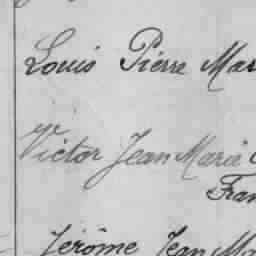 Louis Pierre Mar
Victor Jean Marie
Fran
Jérôme Jean Ma